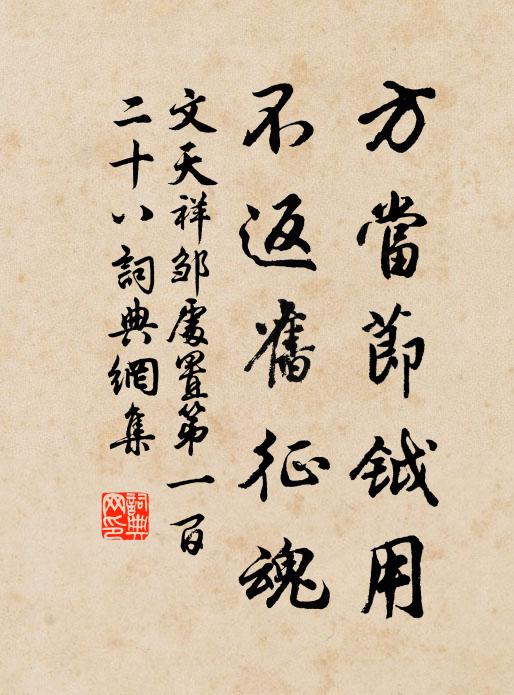 方當節鉞用
不返舊征魂
文天祥邹處置第一百
二十八詞典網集
詞典
网印